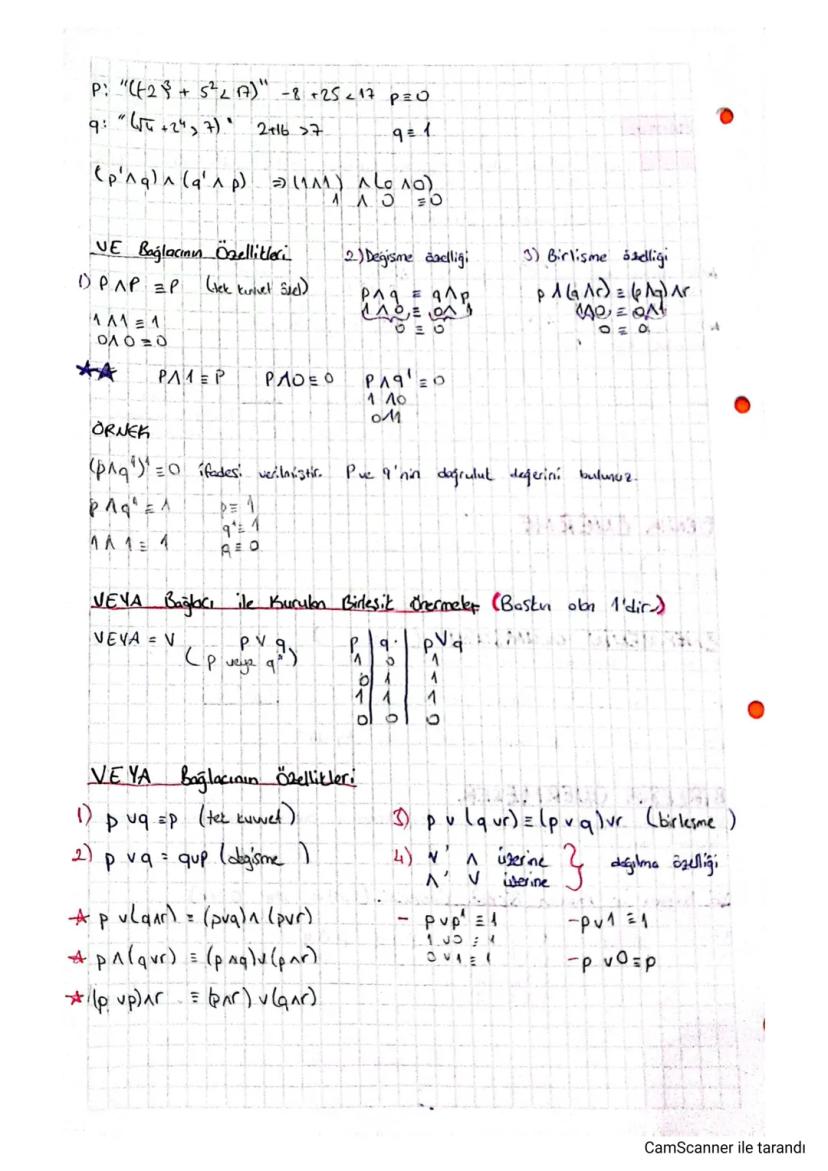 P: "((-2)³ + 5² < 17)" -8 + 25 < 17 p ≡ 0
q: "(√4 + 2⁴ > 7)" 2+16 > 7 q ≡ 1
(p' ∧ q) ∧ (q' ∧ p) ⇒ (1∧1) ∧ (0 ∧ 0)
1 ∧ 0 ≡ 0
VE Bağlacının Özellikleri
1) P ∧ P ≡ P (tek kuvvet özel)
1 ∧ 1 ≡ 1
0 ∧ 0 ≡ 0
2) Değişme özelliği
p ∧ q ≡ q ∧ p
1 ∧ 0 ≡ 0 ∧ 1
0 ≡ 0
3) Birlişme özelliği
p ∧ (q ∧ r) ≡ (p ∧ q) ∧ r
1 ∧ 0 ≡ 0 ∧ 1
0 ≡ 0
★★ P ∧ 1 ≡ P P ∧ 0 ≡ 0 P ∧ q' ≡ 0
1 ∧ 0
0 ∧ 1
ÖRNEK
(p ∧ q')' ≡ 0 ifadesi verilmiştir. P ve q'nin doğruluk değerini bulunuz.
p ∧ q' ≡ 1 p ≡ 1
q' ≡ 1
1 ∧ 1 ≡ 1 q ≡ 0
VEYA Bağlacı ile Kurulan Birleşik Önermeler (Baskın olan 1'dir)
VEYA = V p ∨ q
(p veya q")
p | q | p ∨ q
1 | 0 | 1
0 | 1 | 1
1 | 1 | 1
0 | 0 | 0
VEYA Bağlacının Özellikleri
1) p ∨ q ≡ p (tek kuvvet)
2) p ∨ q = q ∨ p (değişme )
3) p ∨ (q ∨ r) ≡ (p ∨ q) ∨ r (birleşme )
4) ∨' ∧ üzerine
∧' ∨ üzerine } dağılma özelliği
★ p ∨ (q ∧ r) ≡ (p ∨ q) ∧ (p ∨ r)
★ p ∧ (q ∨ r) ≡ (p ∧ q) ∨ (p ∧ r)
★ (p ∨ p) ∧ r ≡ (p ∧ r) ∨ (q ∧ r)
- p ∨ p' ≡ 1
1 ∨ 0 ≡ 1
0 ∨ 1 ≡ 1
- p ∨ 1 ≡ 1
- p ∨ 0 ≡ p
CamScanner ile tarandı